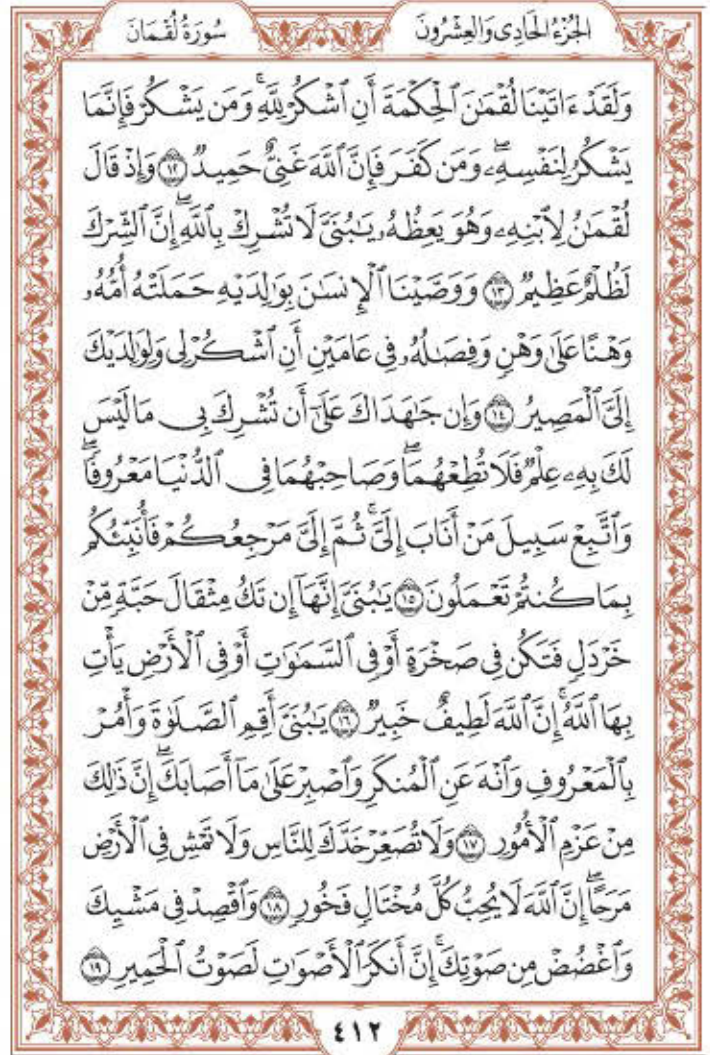 الجُزْءُ الحَادِى وَالعِشْرُونَ سُورَةُ لُقْمَانَ
وَلَقَدْ ءَاتَيْنَا لُقْمَٰنَ ٱلْحِكْمَةَ أَنِ ٱشْكُرْ لِلَّهِۚ وَمَن يَشْكُرْ فَإِنَّمَا
يَشْكُرُ لِنَفْسِهِۦۖ وَمَن كَفَرَ فَإِنَّ ٱللَّهَ غَنِىٌّ حَمِيدٌ ١٢ وَإِذْ قَالَ
لُقْمَٰنُ لِٱبْنِهِۦ وَهُوَ يَعِظُهُۥ يَٰبُنَىَّ لَا تُشْرِكْ بِٱللَّهِۖ إِنَّ ٱلشِّرْكَ
لَظُلْمٌ عَظِيمٌ ١٣ وَوَصَّيْنَا ٱلْإِنسَٰنَ بِوَٰلِدَيْهِ حَمَلَتْهُ أُمُّهُۥ
وَهْنًا عَلَىٰ وَهْنٍ وَفِصَٰلُهُۥ فِى عَامَيْنِ أَنِ ٱشْكُرْ لِى وَلِوَٰلِدَيْكَ
إِلَىَّ ٱلْمَصِيرُ ١٤ وَإِن جَٰهَدَاكَ عَلَىٰٓ أَن تُشْرِكَ بِى مَا لَيْسَ
لَكَ بِهِۦ عِلْمٌ فَلَا تُطِعْهُمَاۖ وَصَاحِبْهُمَا فِى ٱلدُّنْيَا مَعْرُوفًاۖ
وَٱتَّبِعْ سَبِيلَ مَنْ أَنَابَ إِلَىَّۚ ثُمَّ إِلَىَّ مَرْجِعُكُمْ فَأُنَبِّئُكُم
بِمَا كُنتُمْ تَعْمَلُونَ ١٥ يَٰبُنَىَّ إِنَّهَآ إِن تَكُ مِثْقَالَ حَبَّةٍ مِّنْ
خَرْدَلٍ فَتَكُن فِى صَخْرَةٍ أَوْ فِى ٱلسَّمَٰوَٰتِ أَوْ فِى ٱلْأَرْضِ يَأْتِ
بِهَا ٱللَّهُۚ إِنَّ ٱللَّهَ لَطِيفٌ خَبِيرٌ ١٦ يَٰبُنَىَّ أَقِمِ ٱلصَّلَوٰةَ وَأْمُرْ
بِٱلْمَعْرُوفِ وَٱنْهَ عَنِ ٱلْمُنكَرِ وَٱصْبِرْ عَلَىٰ مَآ أَصَابَكَۖ إِنَّ ذَٰلِكَ
مِنْ عَزْمِ ٱلْأُمُورِ ١٧ وَلَا تُصَعِّرْ خَدَّكَ لِلنَّاسِ وَلَا تَمْشِ فِى ٱلْأَرْضِ
مَرَحًاۖ إِنَّ ٱللَّهَ لَا يُحِبُّ كُلَّ مُخْتَالٍ فَخُورٍ ١٨ وَٱقْصِدْ فِى مَشْيِكَ
وَٱغْضُضْ مِن صَوْتِكَۚ إِنَّ أَنكَرَ ٱلْأَصْوَٰتِ لَصَوْتُ ٱلْحَمِيرِ ١٩
٤١٢